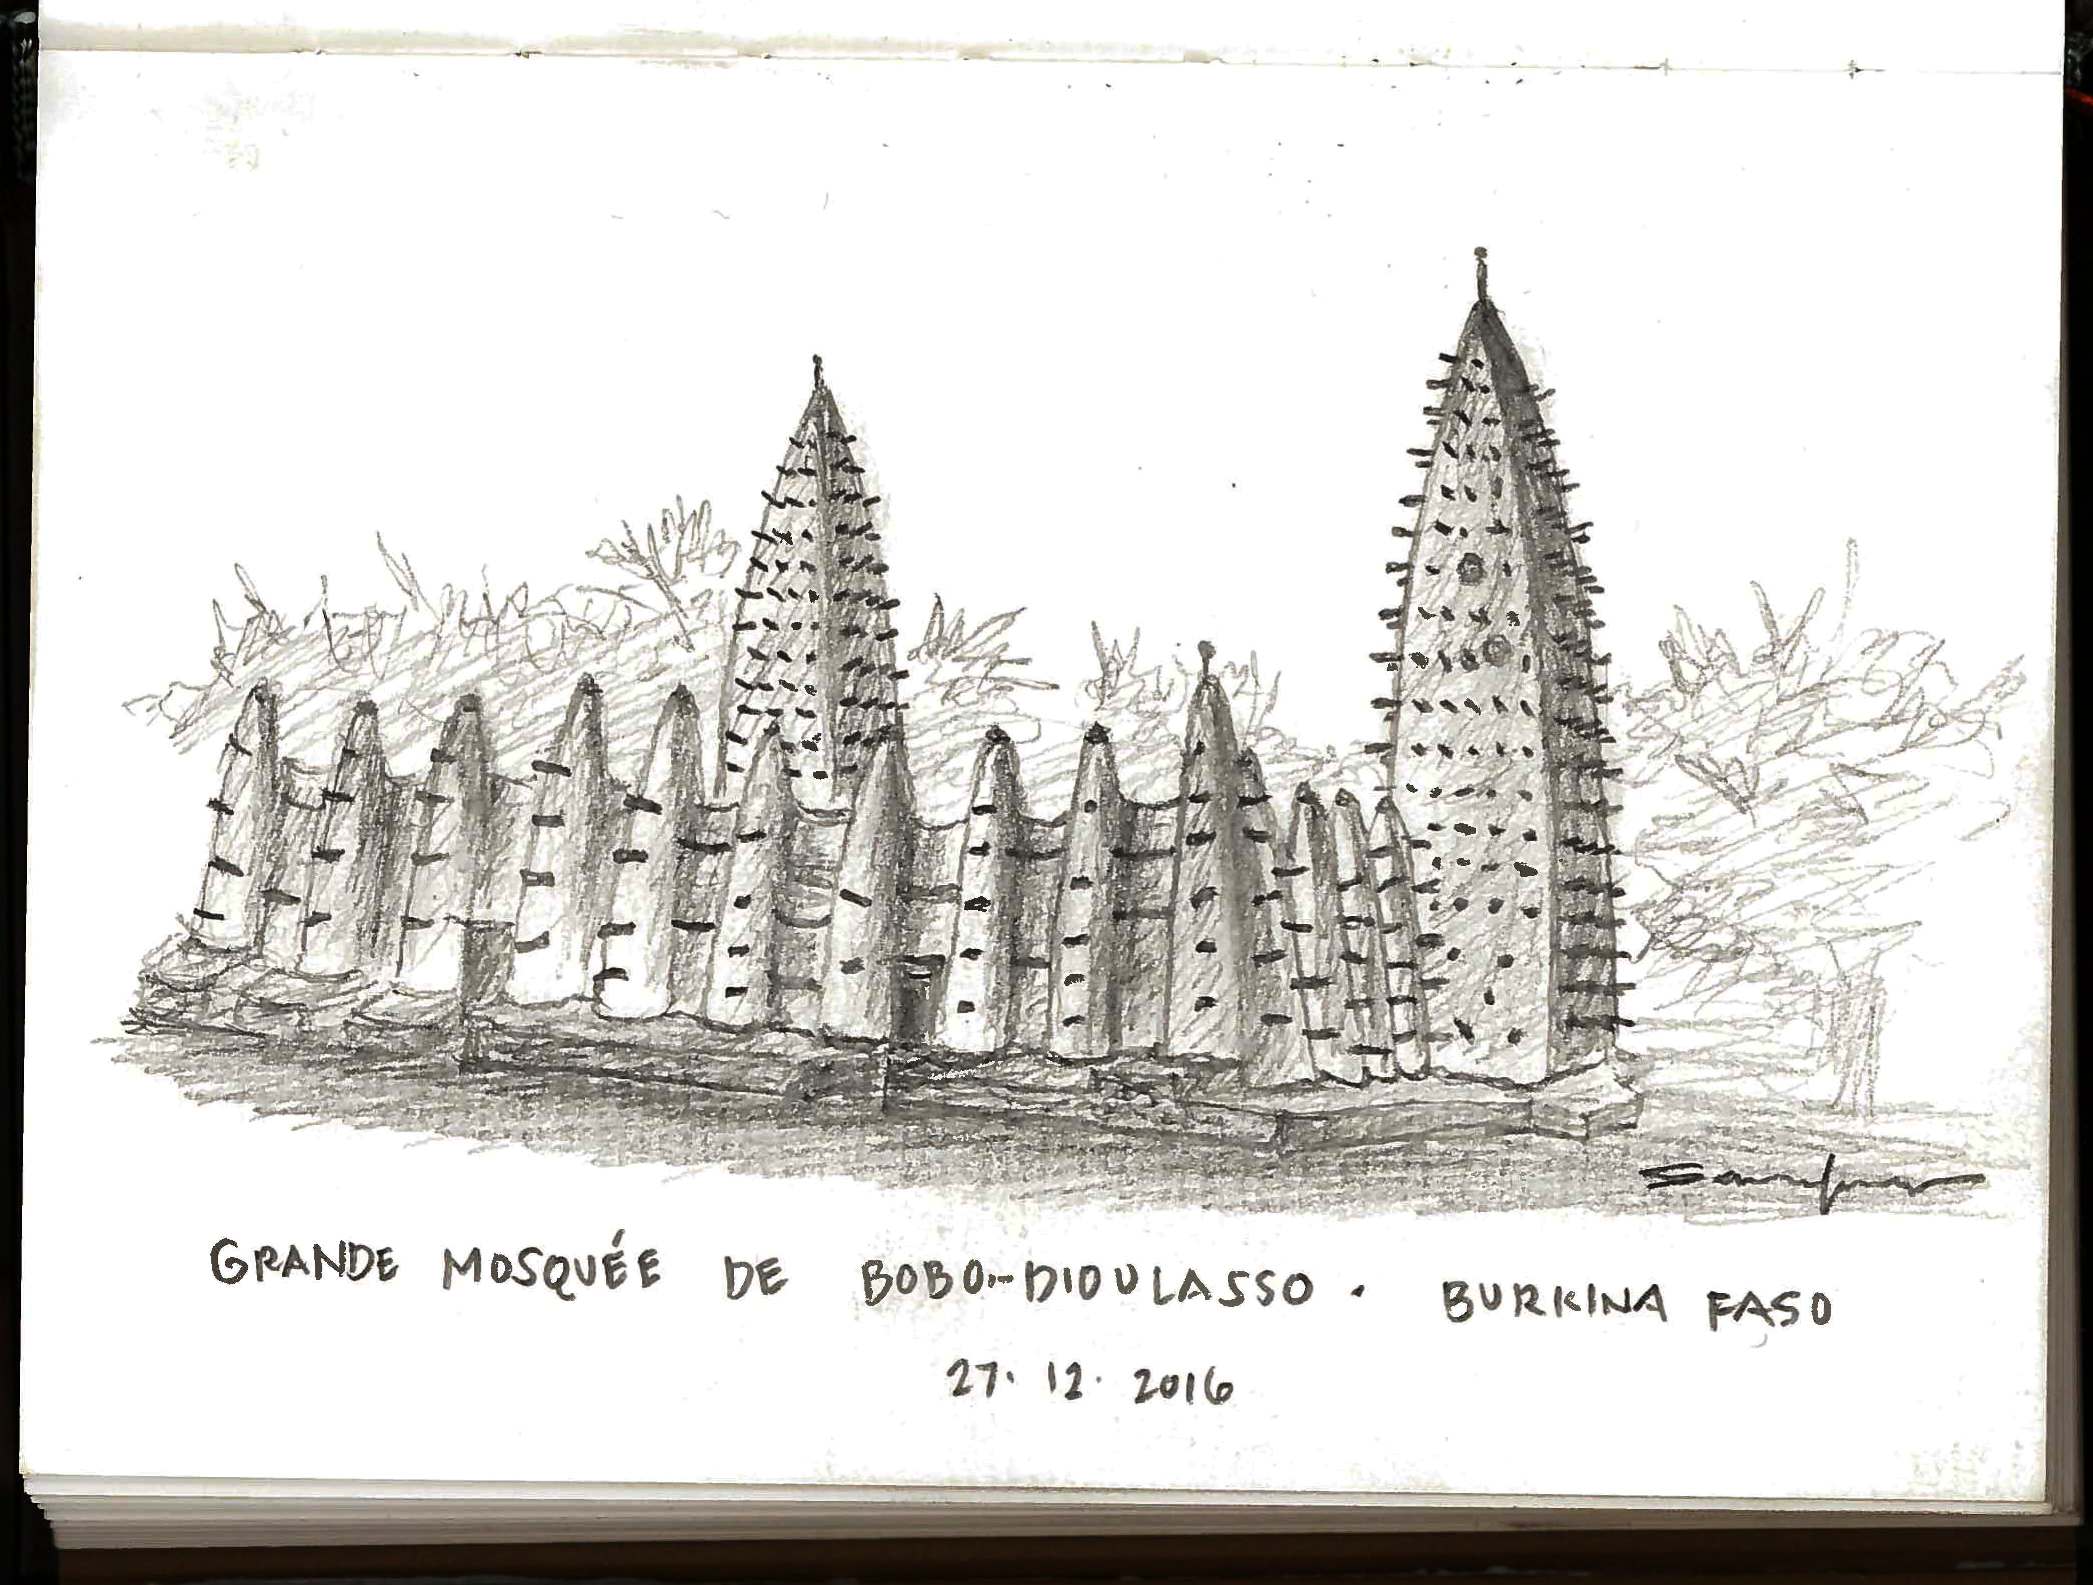 GRANDE MOSQUÉE DE BOBO-DIOULASSO. BURKINA FASO
27. 12. 2016